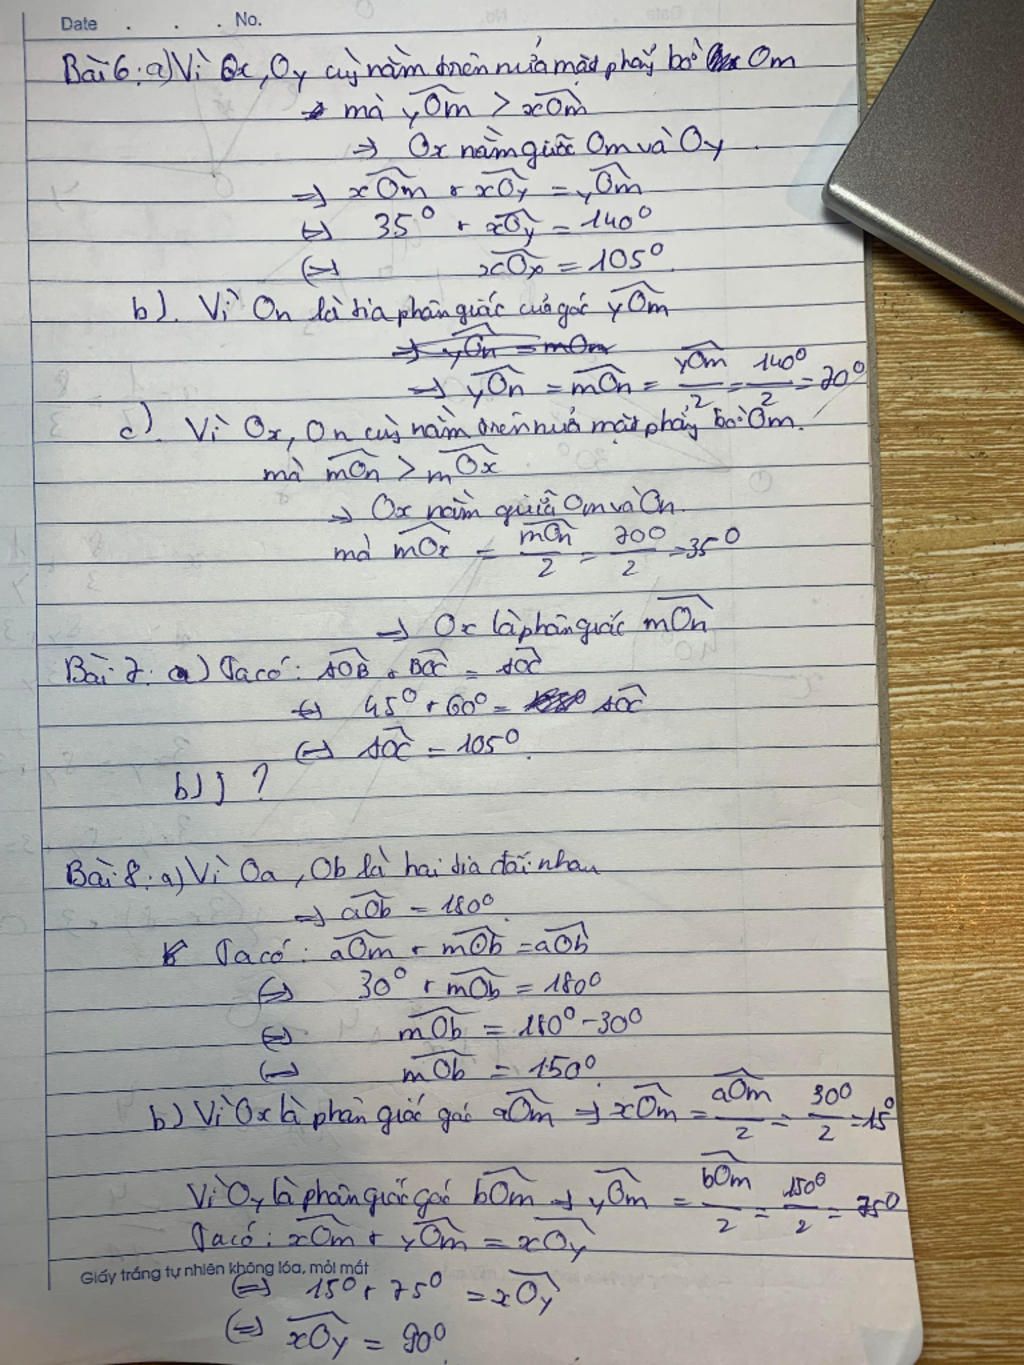 Date . . . No.
Bài 6: a) Vì Ox, Oy cùng nằm trên nửa mặt phẳng bờ Om
mà yOm > xOm
⇒ Ox nằm giữa Om và Oy.
⇒ xOm + xOy = yOm
⇔ 35⁰ + xOy = 140⁰
⇔ xOy = 105⁰.
b). Vì On là tia phân giác của góc yOm
⇒ yOn = mOn
⇒ yOn = mOn = yOm/2 = 140⁰/2 = 70⁰
c). Vì Ox, On cùng nằm trên nửa mặt phẳng bờ Om.
mà mOn > mOx
⇒ Ox nằm giữa Om và On.
mà mOx = mOn/2 = 70⁰/2 = 35⁰
⇒ Ox là phân giác mOn
Bài 7: a) Ta có: AOB + BOC = AOC
⇔ 45⁰ + 60⁰ = AOC
⇔ AOC = 105⁰.
b) ?
Bài 8: a) Vì Oa, Ob là hai tia đối nhau
⇒ aOb = 180⁰.
Ta có: aOm + mOb = aOb
⇔ 30⁰ + mOb = 180⁰
⇔ mOb = 180⁰ - 30⁰
⇔ mOb = 150⁰
b) Vì Ox là phân giác góc aOm ⇒ xOm = aOm/2 = 30⁰/2 = 15⁰
Vì Oy là phân giác góc bOm ⇒ yOm = bOm/2 = 150⁰/2 = 75⁰
Ta có: xOm + yOm = xOy
Giấy trắng tự nhiên không lóa, mỏi mắt
⇔ 15⁰ + 75⁰ = xOy
⇔ xOy = 90⁰